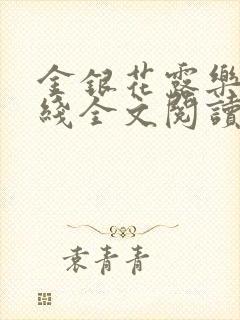 金銀花露樂
綫全文閱讀
袁青青